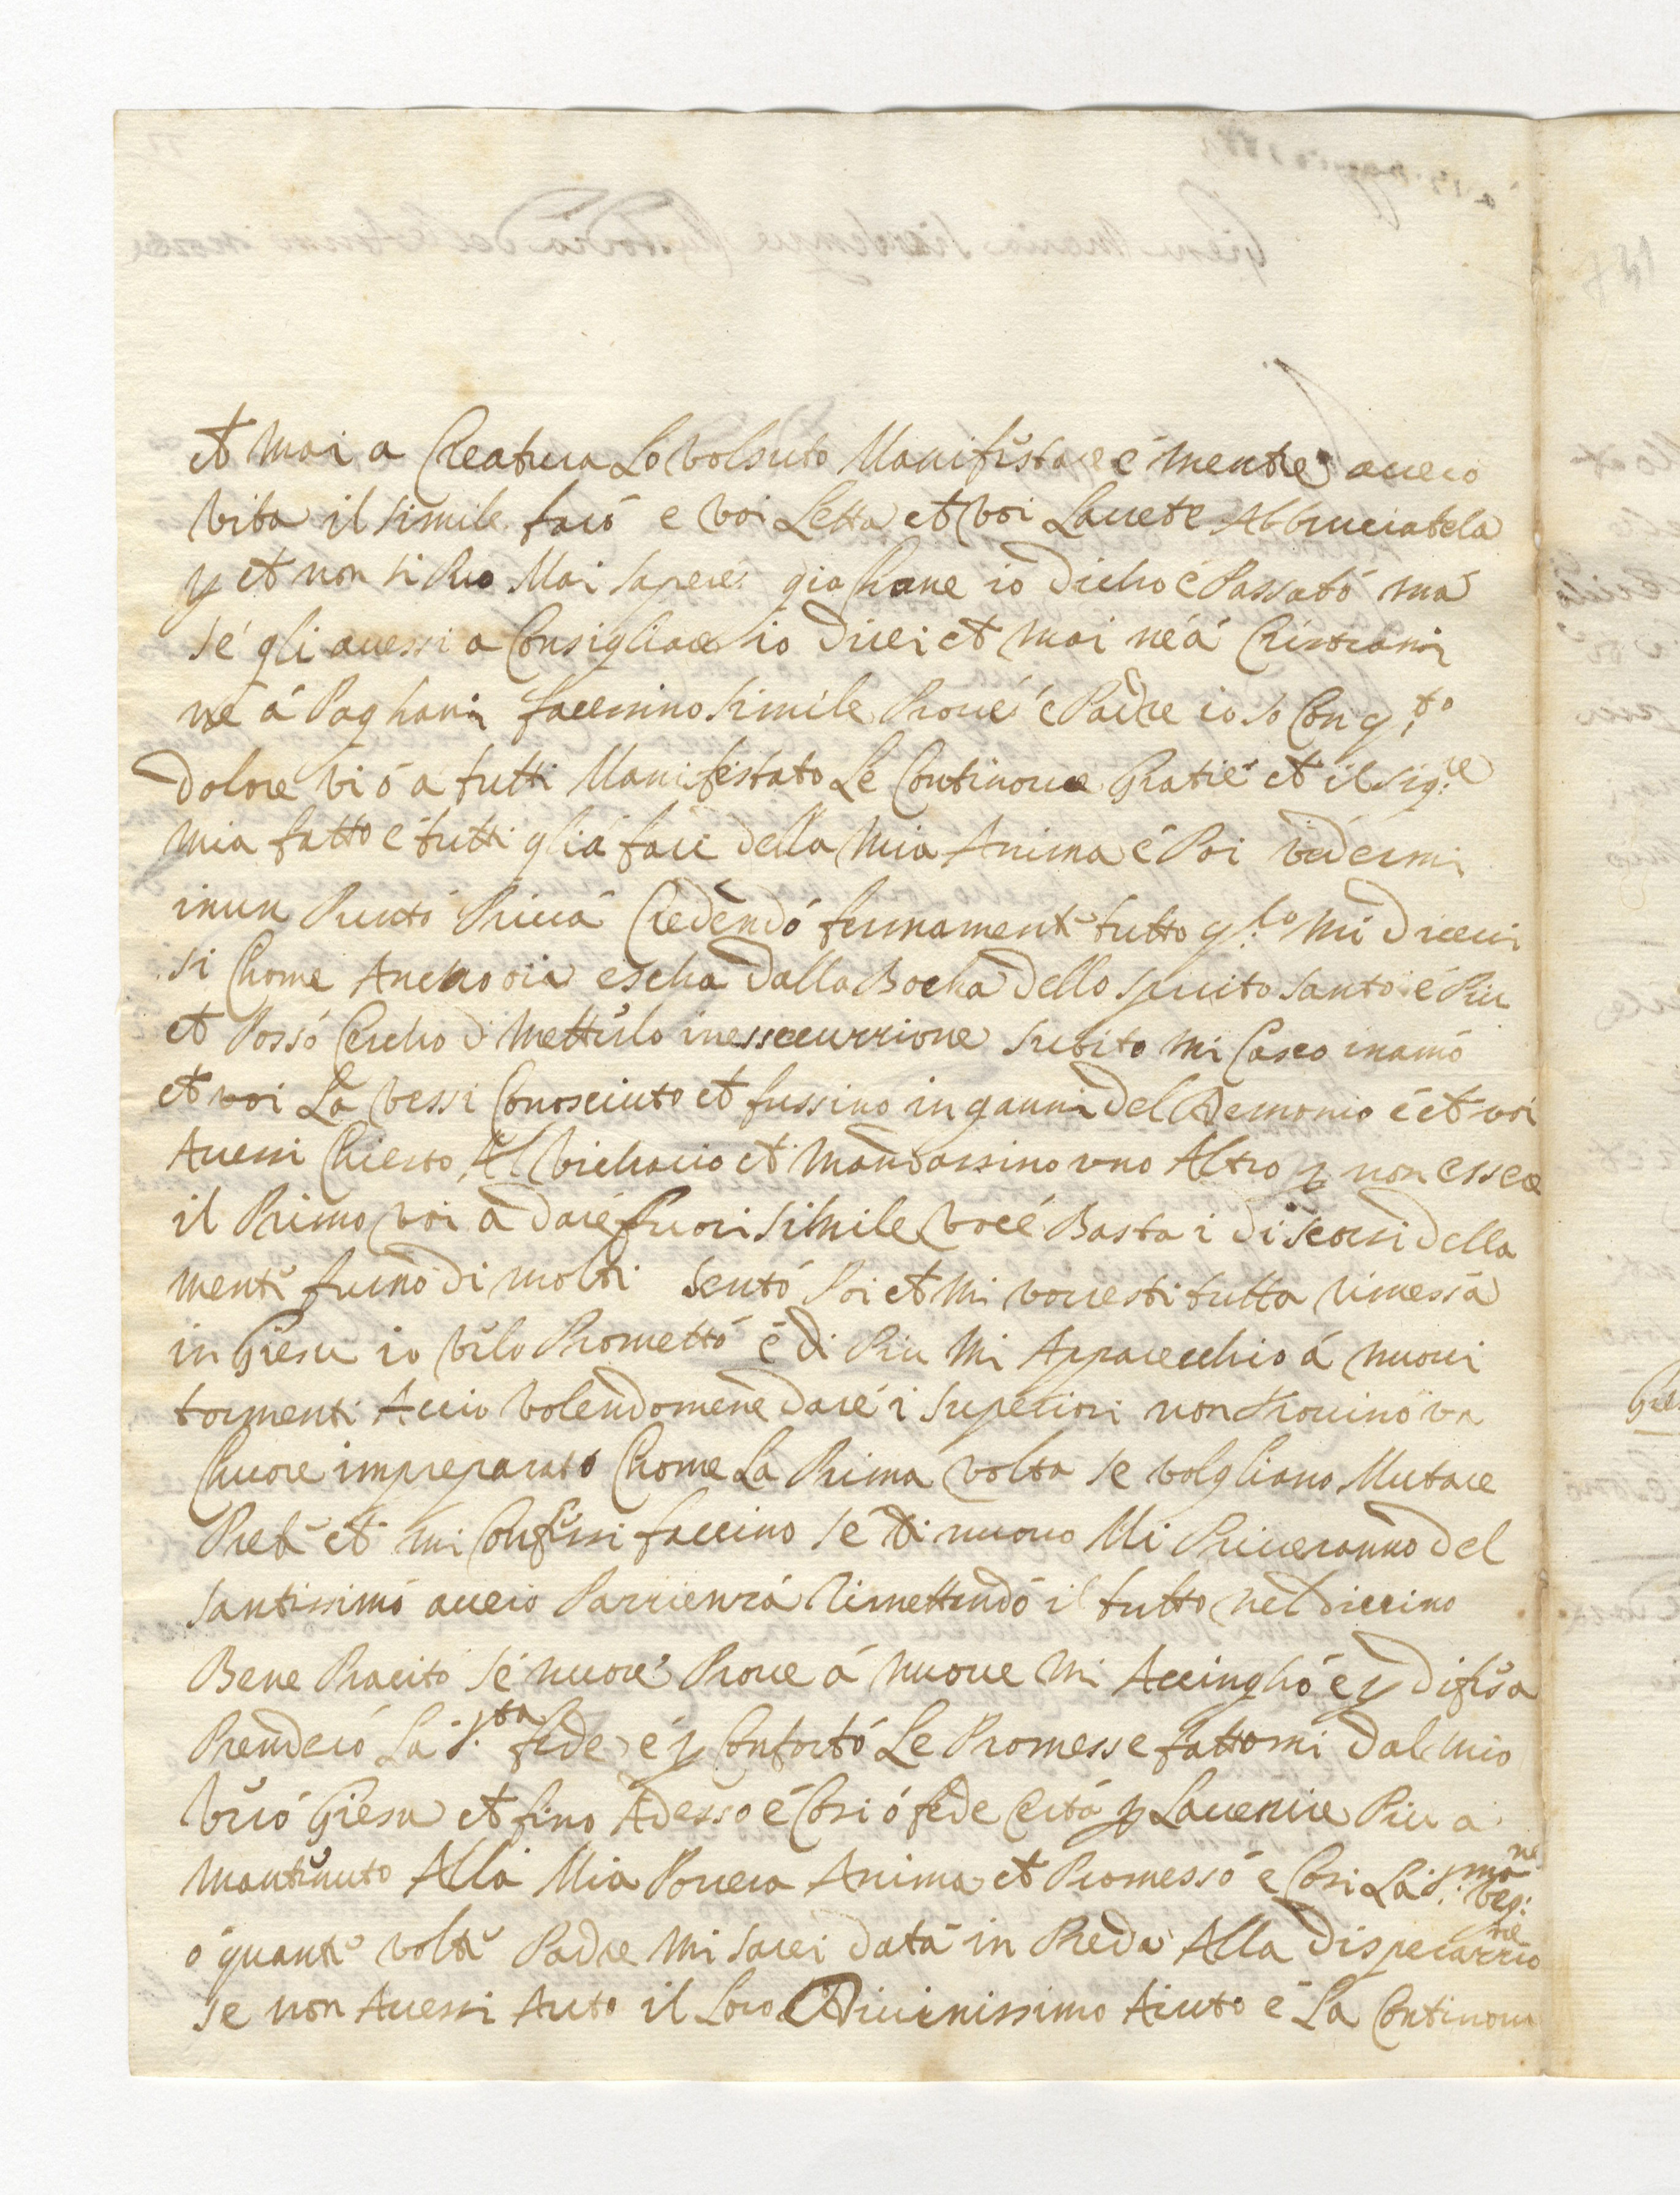 et mai a Creatura Lo volsuto Manifestare é mentre auero
vita il simile faró e voi Letta et voi Lauete Abbruciatela
p et non si Puo Mai sapere gia Chane io dicho é Passató má
sé gli auessi a Consigliare io direi et mai né á Cristiani
né á Paghani facessino simile Proué é Padre io so Con q.to
dolore vi ó a tutti Manifestato Le Continoue Gratie et il Sig.re
mia fatto é tutti gliá fari della mia Anima é Poi vedermi
inun Puntó Priuá Credendó fermamente tutto q.lo mi diceui
si Chome Anchoria escha dalla Bocha dello Spirito Santo é Piu
et Possó Cercho di Metterlo inessecuzzione subito mi Casco inamó
et voi La vessi Conosciuto et fussino inganni del Demonio é et voi
Auessi Chiesto Al Vichario et mandassino uno Altro p non essere
il Primo voi á daré fuori simile vocé Basta i discorsi della
mente furno di molti sentó Poi et mi vorresti tutta rimessá
in Giesu io velo Promettó é di Piu Mi Apparecchio á nuoui
tormenti Accio volendomene daré i superiori non trouino un
Chuore impreparato Chome La Prima volta se volgliano Mutare
Prete et mi Confessi faccino sé di nuouo Mi Priueranno del
santissimó auero Pazzienzá Rimettendó il tutto nel diuino
Bene Pracito sé nuoue Proue á nuoue mi Accinghó é p difesa
Prenderó La S.ta fede é p Confortó Le Promesse fattomi dal mio
veró Giesu et fino Adesso é Cosi ó fede Certá p Lauenire Piu a
mantenuto Allá Mia Pouera Anima et Promessó e Cosi La S.ma Verg:ne
ó quante volte Padre Mi sarei datá in Preda Alla disperazzione
se non Auessi Auto il Loro Diuinissimo Aiuto é La Continoua